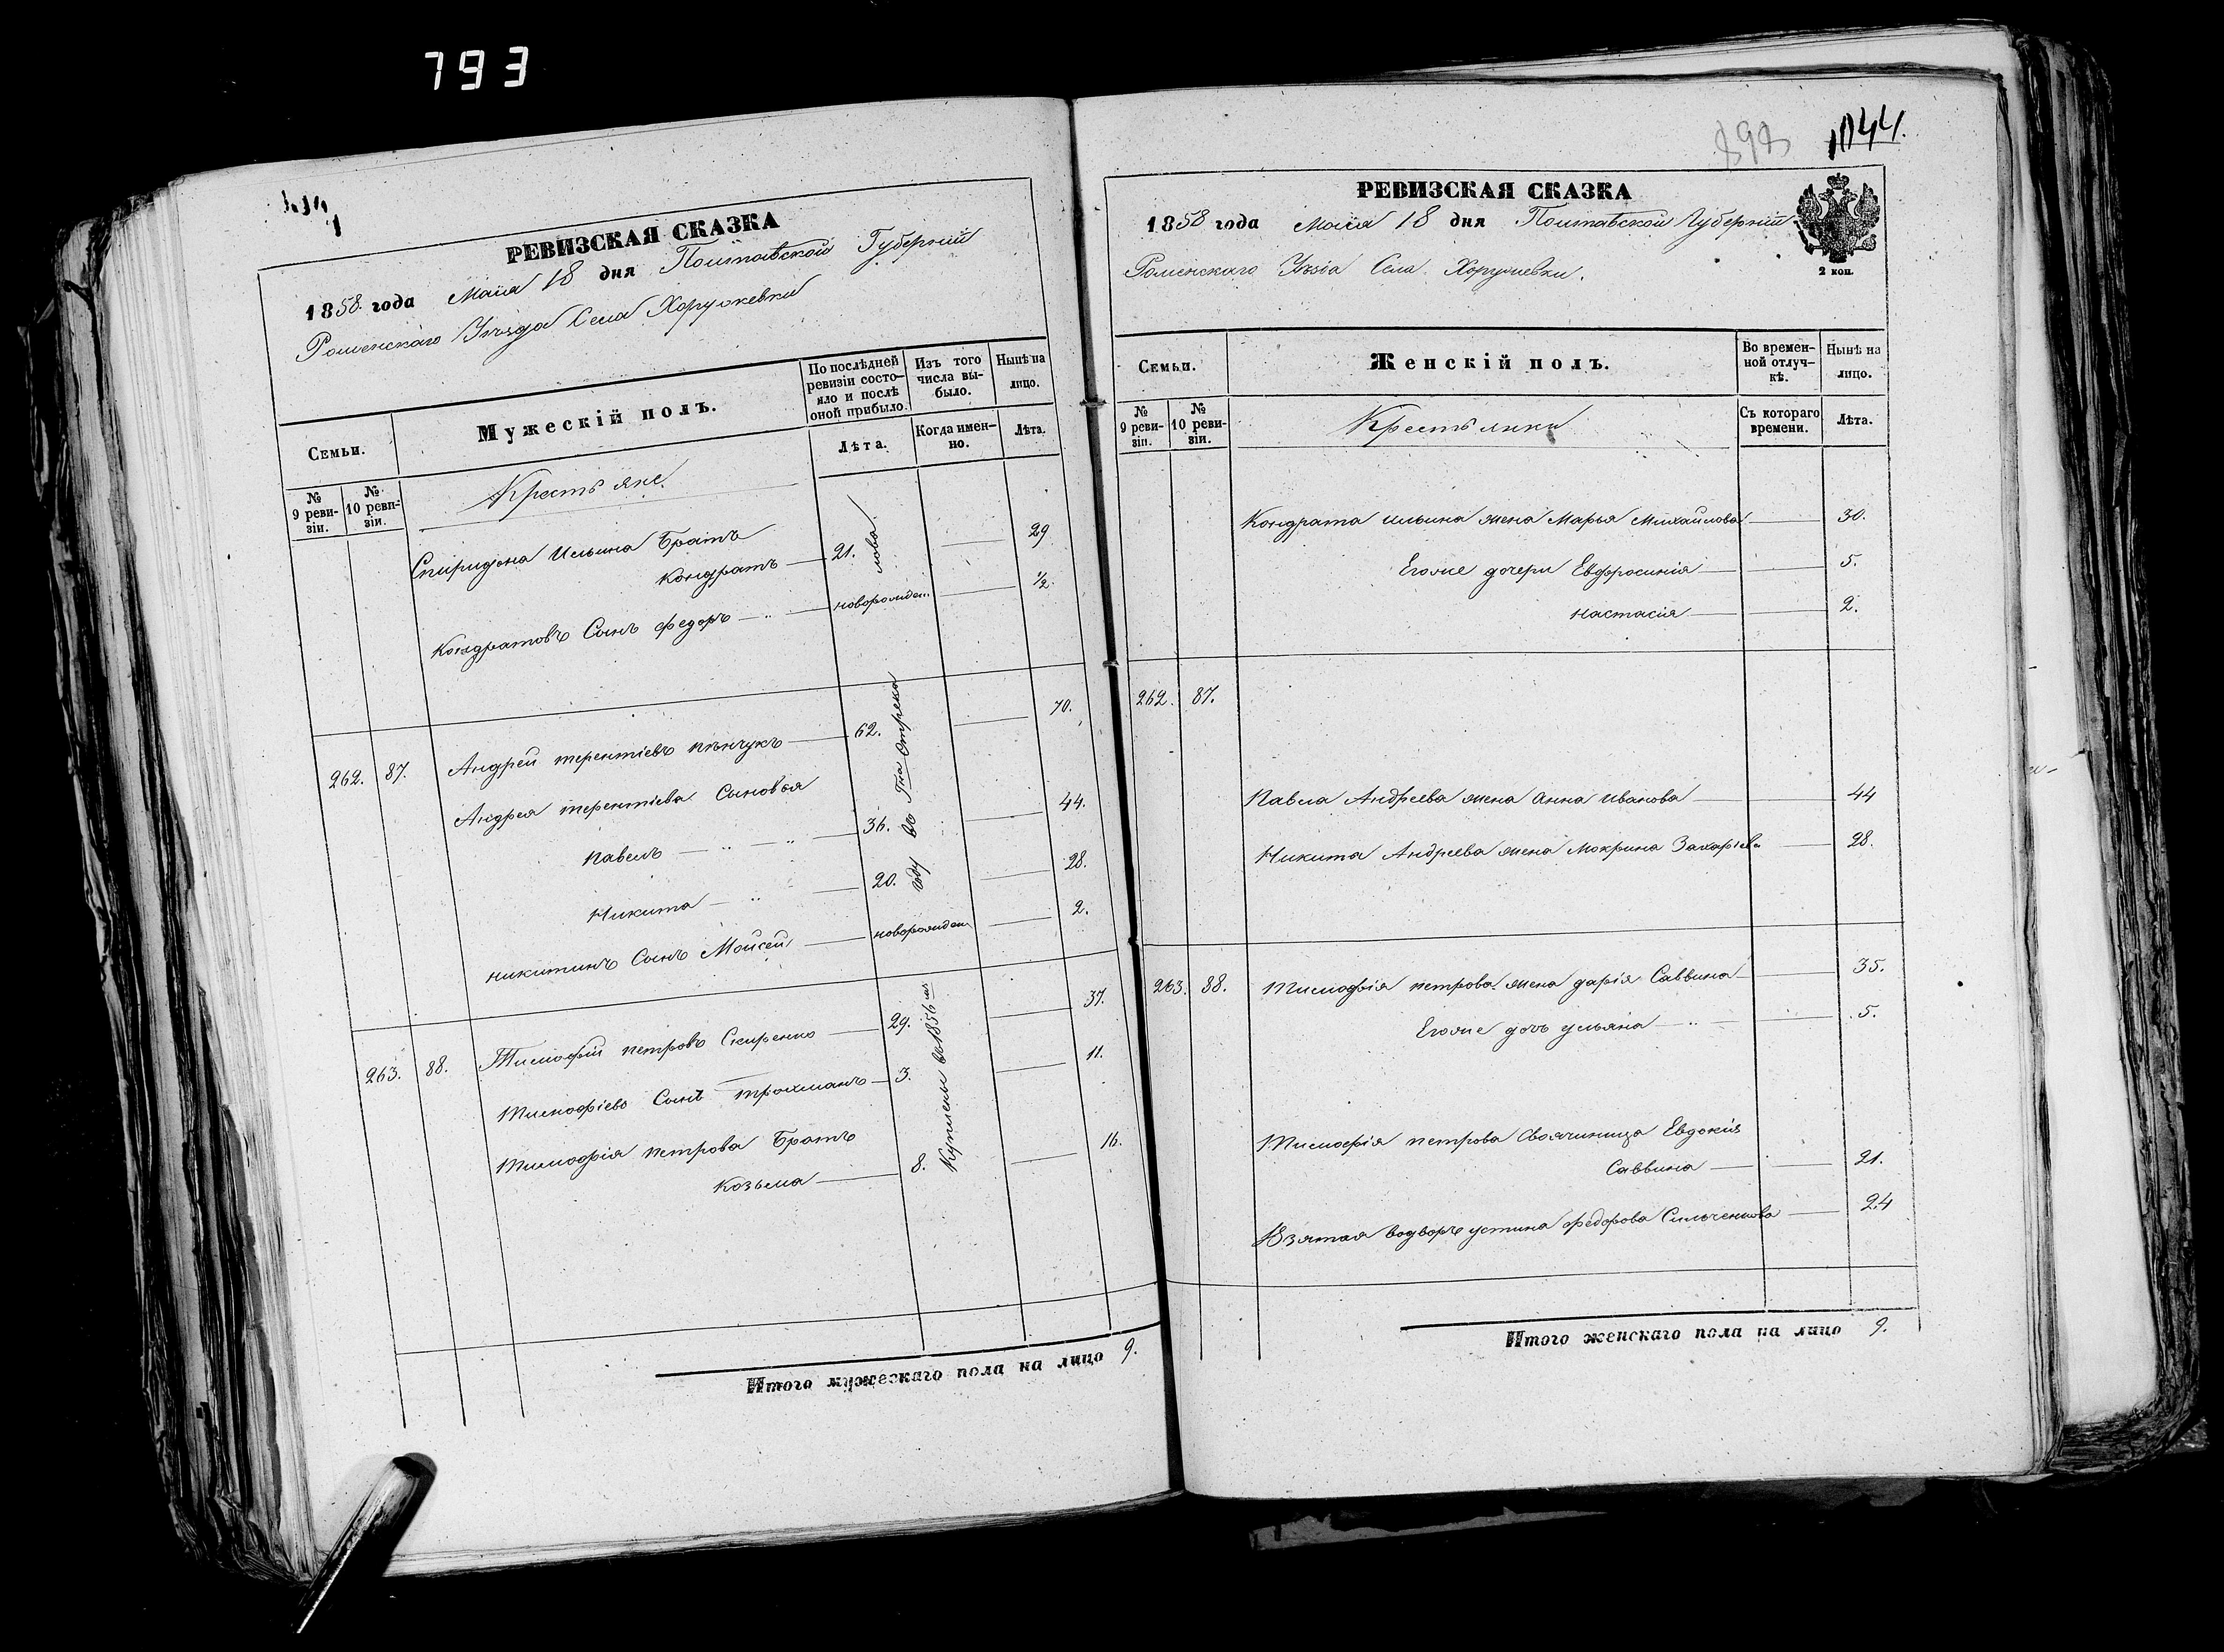 793
РЕВИЗСКАЯ СКАЗКА
1858. года Маія 18 дня Полтавской Губерніи
Роменскаго Уѣзда Села Хоружевки
Семьи.
Мужескій полъ.
По послѣдней ревизіи состояло и послѣ оной прибыло.
Изъ того числа выбыло.
Нынѣ на лицо.
№ 9 ревизіи.
№ 10 ревизіи.
Крестьяне.
Лѣта.
Когда именно.
Лѣта.
Спиридона Ильина Братъ
Кондратъ — 21. — 29
Кондратовъ Сынъ Федоръ — " — новорожден. — 1/2
262. 87. Андрей терентіевъ пѣнчукъ — 62. — 70.
Андрея терентіева Сыновья
Павелъ — " — " — 36. — 44.
Никита — " — 20. — 28.
никитинъ Сынъ Мойсей — новорожден. — 2.
263. 88. Тимофій петровъ Скиренко — 29. — 37.
Тимофіевъ Сынъ трохимъ — 3. — 11.
Тимофія петрова Братъ
Козьма — 8. — 16.
лова
году
Куплены въ 1856 мъ
Итого мужескаго пола на лицо 9.
898 1044.
РЕВИЗСКАЯ СКАЗКА
1858 года Маія 18 дня Полтавской Губерніи
Роменскаго Уѣзда Села Хоружевки.
2 коп.
Семьи.
Женскій полъ.
Во временной отлучкѣ.
Нынѣ на лицо.
№ 9 ревизіи.
№ 10 ревизіи.
Крестьянки
Съ котораго времени.
Лѣта.
Кондрата ильина жена Марья Михайлова — 30.
Егоже дочери Евфросинія — 5.
настасія — 2.
262. 87.
Павла Андреева жена Анна иванова — 44
Никита Андреева жена Мокрина Захаріева — 28.
263. 88. Тимофія петрова жена дарія Саввина — 35.
Егоже дочь ульяна — " — 5.
Тимофія петрова Своячиница Евдокія
Саввина — 21.
Взятая водворъ устина федорова Сильченкова — 24
Итого женскаго пола на лицо 9.